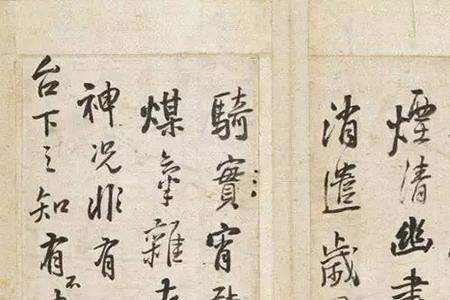 煙清幽
消遣歲
騎實
煤氣雜
神况非有
台下之知有不